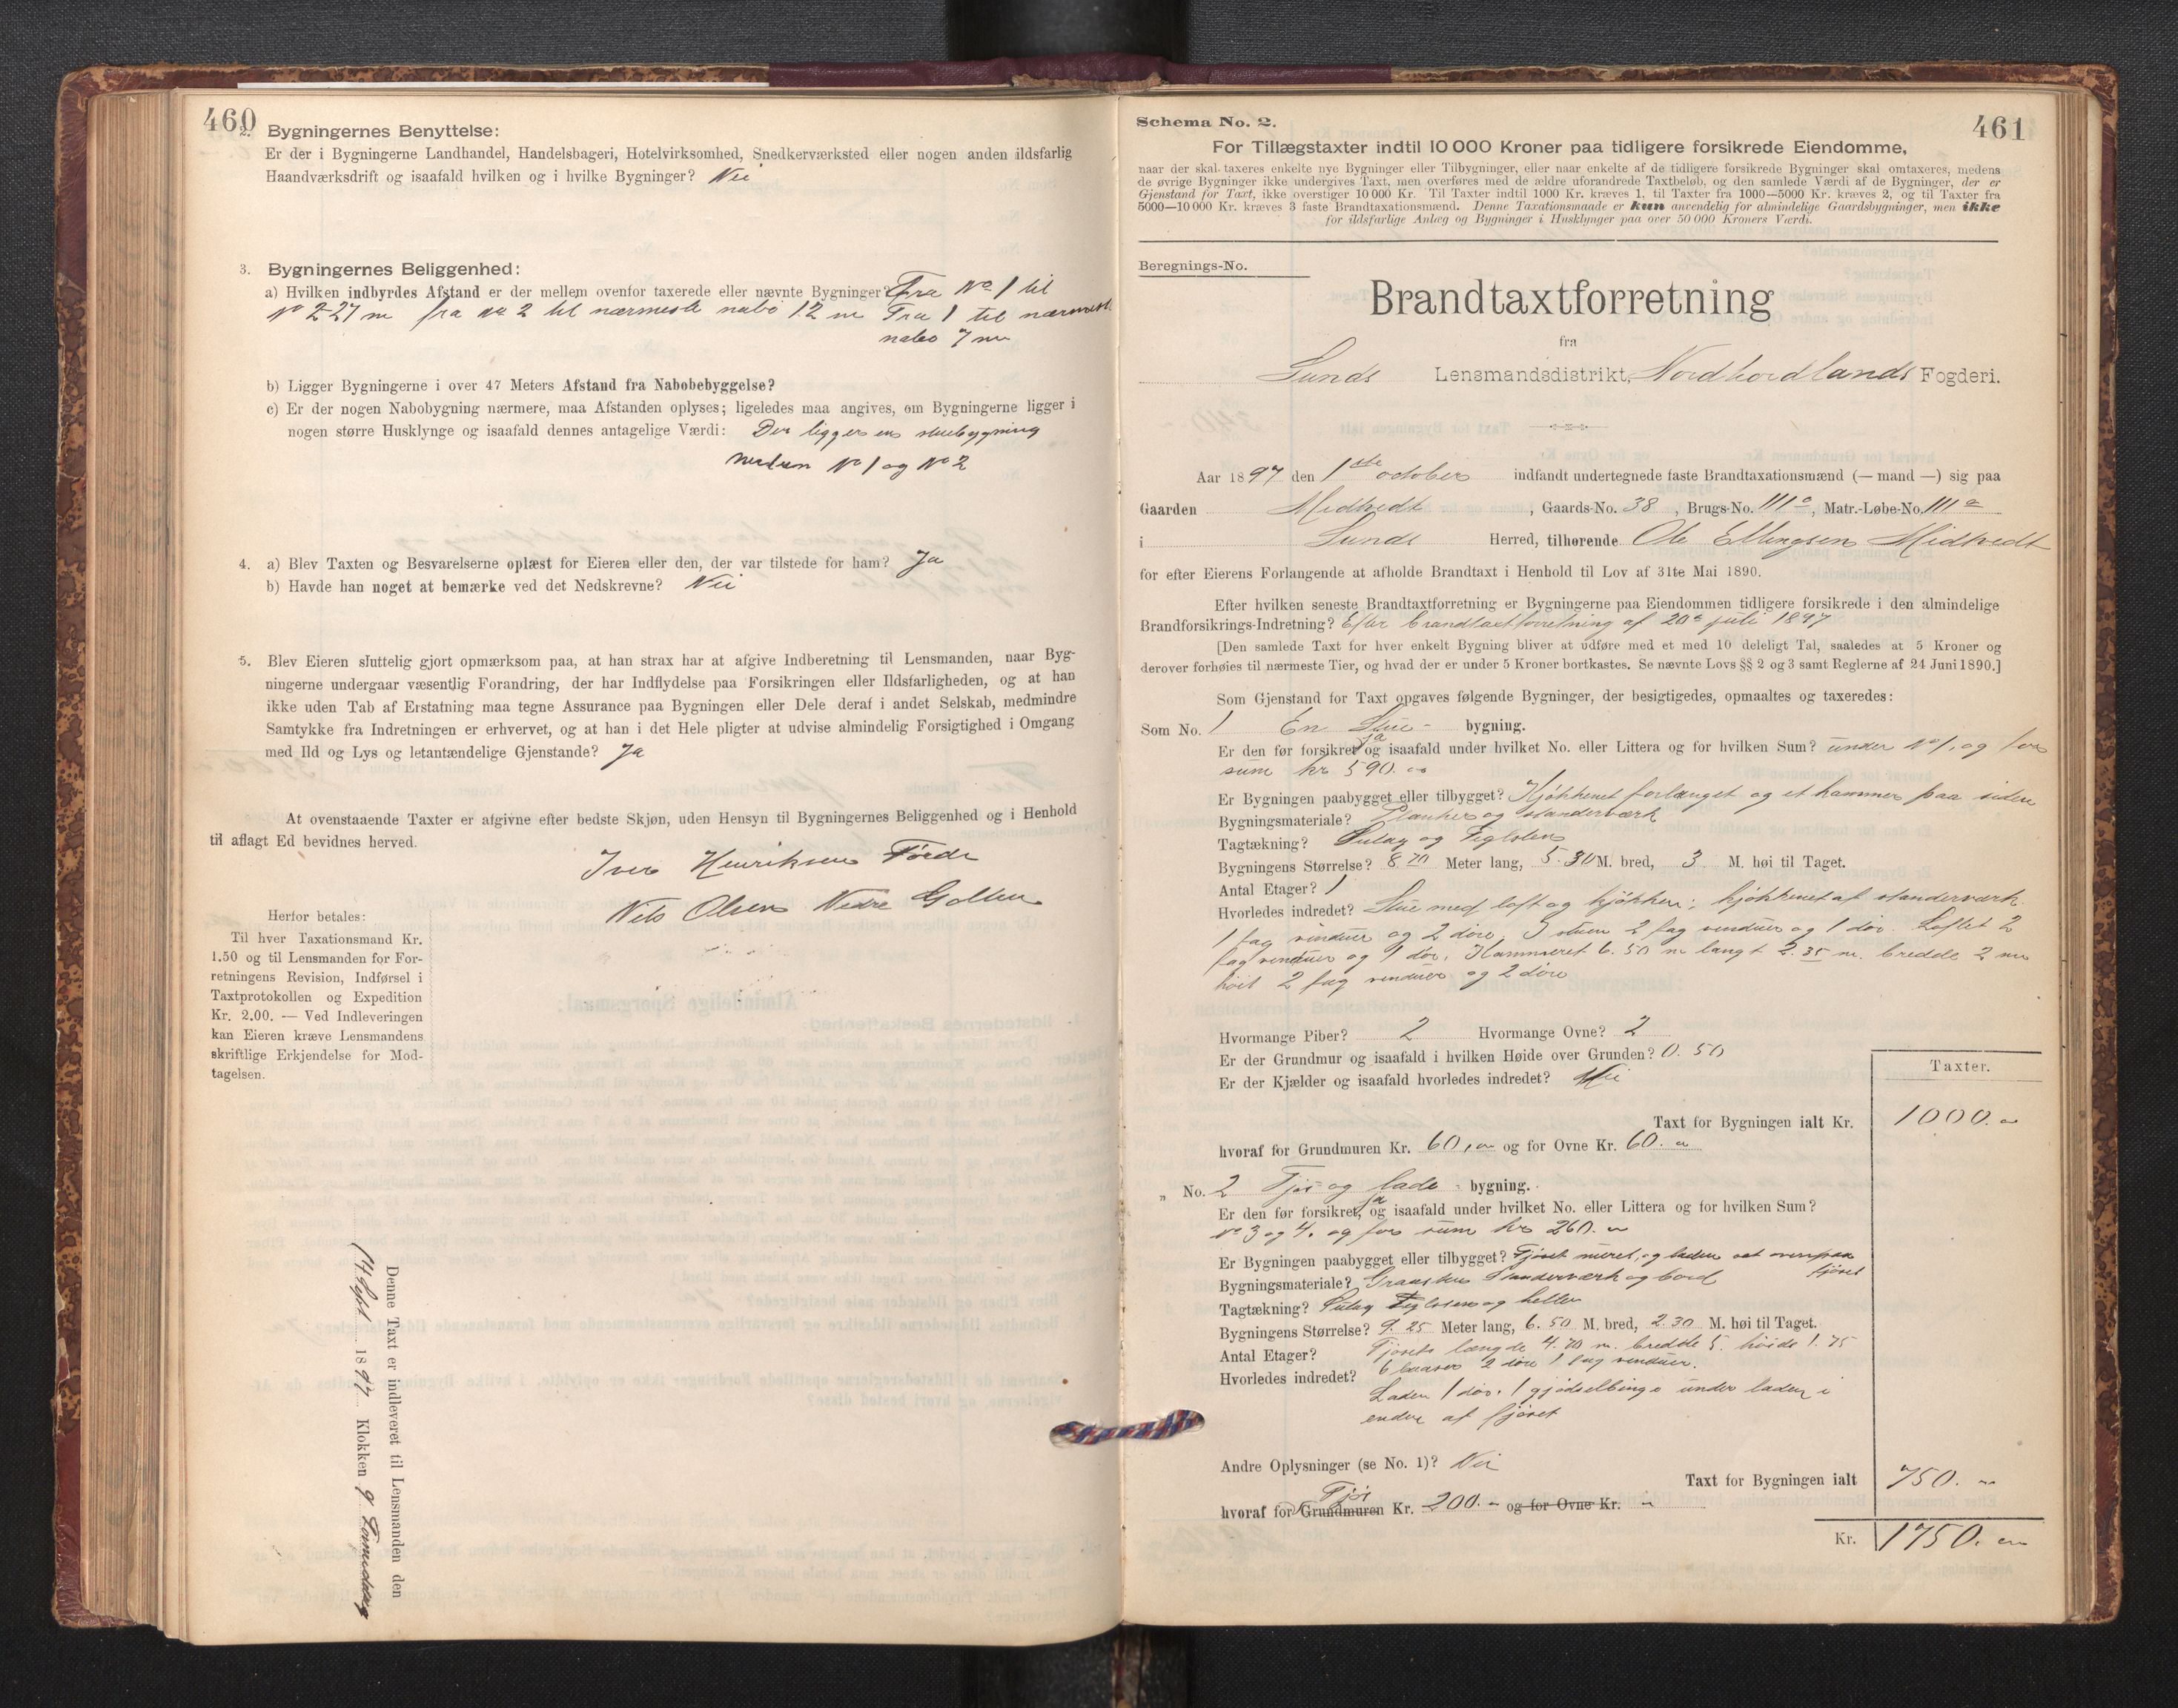 460
2. Bygningernes Benyttelse:
Er der i Bygningerne Landhandel, Handelsbageri, Hotelvirksomhed, Snedkerværksted eller nogen anden ildsfarlig
Haandværksdrift og isaafald hvilken og i hvilke Bygninger? Nei
3. Bygningernes Beliggenhed:
a) Hvilken indbyrdes Afstand er der mellem ovenfor taxerede eller nævnte Bygninger? Fra No 1 til
No 2 27 m fra No 2 til nærmeste nabo 12 m Fra 1 til nærmeste
nabo 7 m
b) Ligger Bygningerne i over 47 Meters Afstand fra Nabobebyggelse?
c) Er der nogen Nabobygning nærmere, maa Afstanden oplyses; ligeledes maa angives, om Bygningerne ligger i
nogen større Husklynge og isaafald dennes antagelige Værdi: Der ligger en stuebygning
No 1 og No 2
4. a) Blev Taxten og Besvarelserne oplæst for Eieren eller den, der var tilstede for ham? Ja
b) Havde han noget at bemærke ved det Nedskrevne? Nei
5. Blev Eieren sluttelig gjort opmærksom paa, at han strax har at afgive Indberetning til Lensmanden, naar Byg-
ningerne undergaar væsentlig Forandring, der har Indflydelse paa Forsikringen eller Ildsfarligheden, og at han
ikke uden Tab af Erstatning maa tegne Assurance paa Bygningen eller Dele deraf i andet Selskab, medmindre
Samtykke fra Indretningen er erhvervet, og at han i det Hele pligter at udvise almindelig Forsigtighed i Omgang
med Ild og Lys og letantændelige Gjenstande? Ja
At ovenstaaende Taxter er afgivne efter bedste Skjøn, uden Hensyn til Bygningernes Beliggenhed og i Henhold
til aflagt Ed bevidnes herved.
Iver Henriksen Førde
Nils Olsen Nedre Golten
Herfor betales:
Til hver Taxationsmand Kr.
1.50 og til Lensmanden for For-
retningens Revision, Indførsel i
Taxtprotokollen og Expedition
Kr. 2.00. — Ved Indleveringen
kan Eieren kræve Lensmandens
skriftlige Erkjendelse for Mod-
tagelsen.
Denne Taxt er indleveret til Lensmanden den
14 Sept 1897 Klokken 9 Formiddag
461
Schema No. 2.
For Tillægstaxter indtil 10 000 Kroner paa tidligere forsikrede Eiendomme,
naar der skal taxeres enkelte nye Bygninger eller Tilbygninger, eller naar enkelte af de tidligere forsikrede Bygninger skal omtaxeres, medens
de øvrige Bygninger ikke undergives Taxt, men overføres med de ældre uforandrede Taxtbeløb, og den samlede Værdi af de Bygninger, der er
Gjenstand for Taxt, ikke overstiger 10 000 Kr. Til Taxter indtil 1000 Kr. kræves 1, til Taxter fra 1000—5000 Kr. kræves 2, og til Taxter fra
5000—10 000 Kr. kræves 3 faste Brandtaxationsmænd. Denne Taxationsmaade er kun anvendelig for almindelige Gaardsbygninger, men ikke
for ildsfarlige Anlæg og Bygninger i Husklynger paa over 50 000 Kroners Værdi.
Beregnings-No.
Brandtaxtforretning
fra
Sunds Lensmandsdistrikt, Nordhordlands Fogderi.
Aar 1897 den 1ste october indfandt undertegnede faste Brandtaxationsmænd (— mand —) sig paa
Gaarden Midtvedt, Gaards-No. 38, Brugs-No. 111a, Matr.-Løbe-No. 111a
i Sunds Herred, tilhørende Ole Ellingsen Midtvedt
for efter Eierens Forlangende at afholde Brandtaxt i Henhold til Lov af 31te Mai 1890.
Efter hvilken seneste Brandtaxtforretning er Bygningerne paa Eiendommen tidligere forsikrede i den almindelige
Brandforsikrings-Indretning? Efter brandtaxtforretning af 20de juli 1897
[Den samlede Taxt for hver enkelt Bygning bliver at udføre med et med 10 deleligt Tal, saaledes at 5 Kroner og
derover forhøies til nærmeste Tier, og hvad der er under 5 Kroner bortkastes. Se nævnte Lovs §§ 2 og 3 samt Reglerne af 24 Juni 1890.]
Som Gjenstand for Taxt opgaves følgende Bygninger, der besigtigedes, opmaaltes og taxeredes:
Som No. 1 En Stue- bygning.
Er den før forsikret ja og isaafald under hvilket No. eller Littera og for hvilken Sum? under No 1, og for
sum kr 590.
Er Bygningen paabygget eller tilbygget? Kjøkkenet forlænget og et kammer paa siden
Bygningsmateriale? Planker og standerværk
Tagtækning? Sutag og Teglsten
Bygningens Størrelse? 8.70 Meter lang, 5.30 M. bred, 3 M. høi til Taget.
Antal Etager? 1
Hvorledes indredet? Stue med loft og kjøkken; kjøkkenet af standerværk.
1 fag vinduer og 2 døre. I stuen 2 fag vinduer og 1 dør. Loftet 2
fag vinduer og 1 dør. Kammeret 6.50 m langt 2.35 m. bredde 2 m
høit 2 fag vinduer og 2 døre
Hvormange Piber? 2 Hvormange Ovne? 2
Er der Grundmur og isaafald i hvilken Høide over Grunden? 0.50
Er der Kjælder og isaafald hvorledes indredet? Nei
Taxter.
Taxt for Bygningen ialt Kr. 1000.
hvoraf for Grundmuren Kr. 60, og for Ovne Kr. 60.
„ No. 2 Fjøs og lade- bygning.
Er den før forsikret, ja og isaafald under hvilket No. eller Littera og for hvilken Sum?
No 3 og 4. og for sum kr 260.
Er Bygningen paabygget eller tilbygget? Fjøset muret, og laden sat ovenpaa
fjøset
Bygningsmateriale? Graasten Standerværk og bord
Tagtækning? Sutag Teglsten og heller
Bygningens Størrelse? 9.25 Meter lang, 6.50 M. bred, 2.30 M. høi til Taget.
Antal Etager? Fjøsets længde 4.70 m. bredde 5. høide 1.75
Hvorledes indredet? 6 baaser 2 døre 1 fag vinduer.
Laden 1 dør. 1 gjødselbinge under laden i
enden af fjøset
Andre Oplysninger (se No. 1)? Nei
Taxt for Bygningen ialt 750.
Fjøs
hvoraf for Grundmuren Kr. 200.- og for Ovne Kr. -
Kr. 1750.